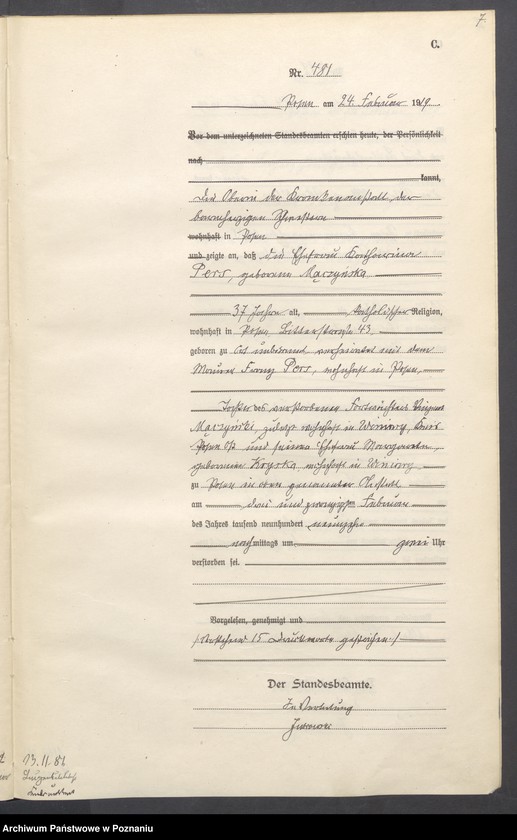 7.
C.
Nr. 481
Posen am 24. Februar 1919.
Vor dem unterzeichneten Standesbeamten erschien heute, der Persönlichkeit
nach
kannt,
die Oberin der Krankenanstalt der
barmherzigen Schwestern
wohnhaft in Posen
und zeigte an, daß die Ehefrau Katharina
Pers, geborene Mączyńska
37 Jahre alt, katholischer Religion,
wohnhaft in Posen, 43,
geboren zu Ort unbekannt, verheiratet mit dem
Maurer Franz Pers, wohnhaft in Posen,
Tochter des verstorbenen
Mączyński, zuletzt wohnhaft in Winiary, Kreis
Posen Ost und seiner Ehefrau Margarete,
geborenen wohnhaft in Winiary
zu Posen in oben genannter Anstalt
am drei und zwanzigsten Februar
des Jahres tausend neunhundert neunzehn
nachmittags um zwei Uhr
verstorben sei.
Vorgelesen, genehmigt und
(Vorstehend 15 Druckworte gestrichen.)
Der Standesbeamte.
In Vertretung
13.11.81
Archiwum Państwowe w Poznaniu